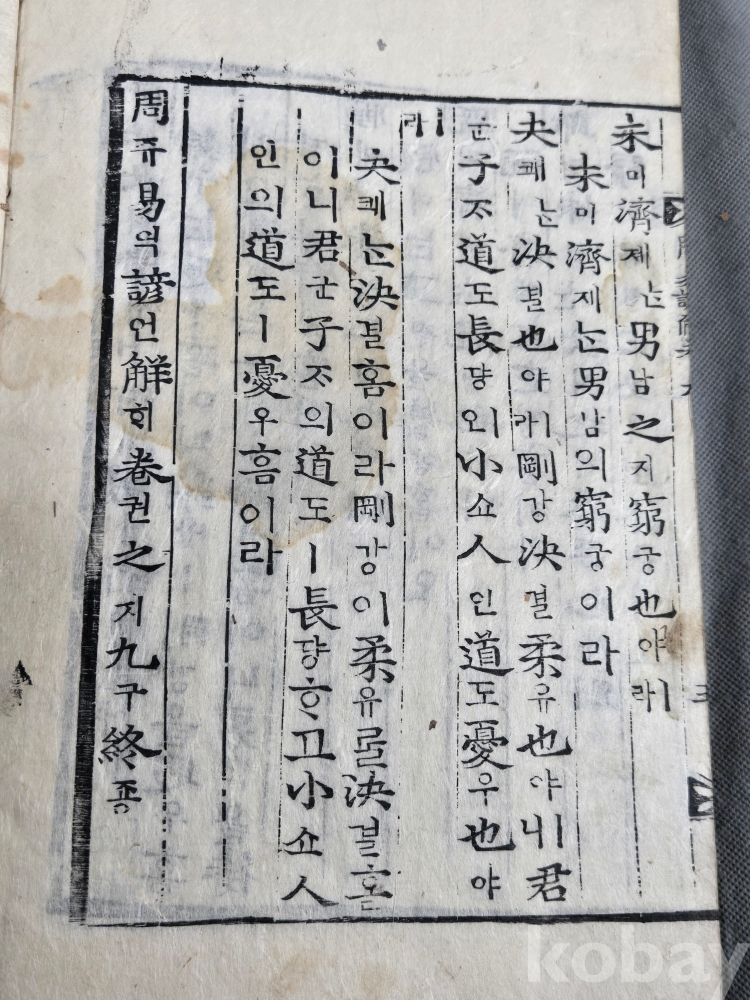 未미濟졔ᄂᆞᆫ男남之지窮궁也야ㅣ라
未미濟졔ᄂᆞᆫ男남의窮궁이라
夬쾌ᄂᆞᆫ決결也야ㅣ라剛강決결柔유也야ㅣ니君
군子ᄌᆞ道도長댱이오小쇼人인道도憂우也야
ㅣ라
夬쾌ᄂᆞᆫ決결홈이라剛강이柔유ᄅᆞᆯ決결홈
이니君군子ᄌᆞ의道도ㅣ長댱ᄒᆞ고小쇼人
인의道도ㅣ憂우흠이라
周쥬易역諺언解ᄒᆡ卷권之지九구終죵
kobay